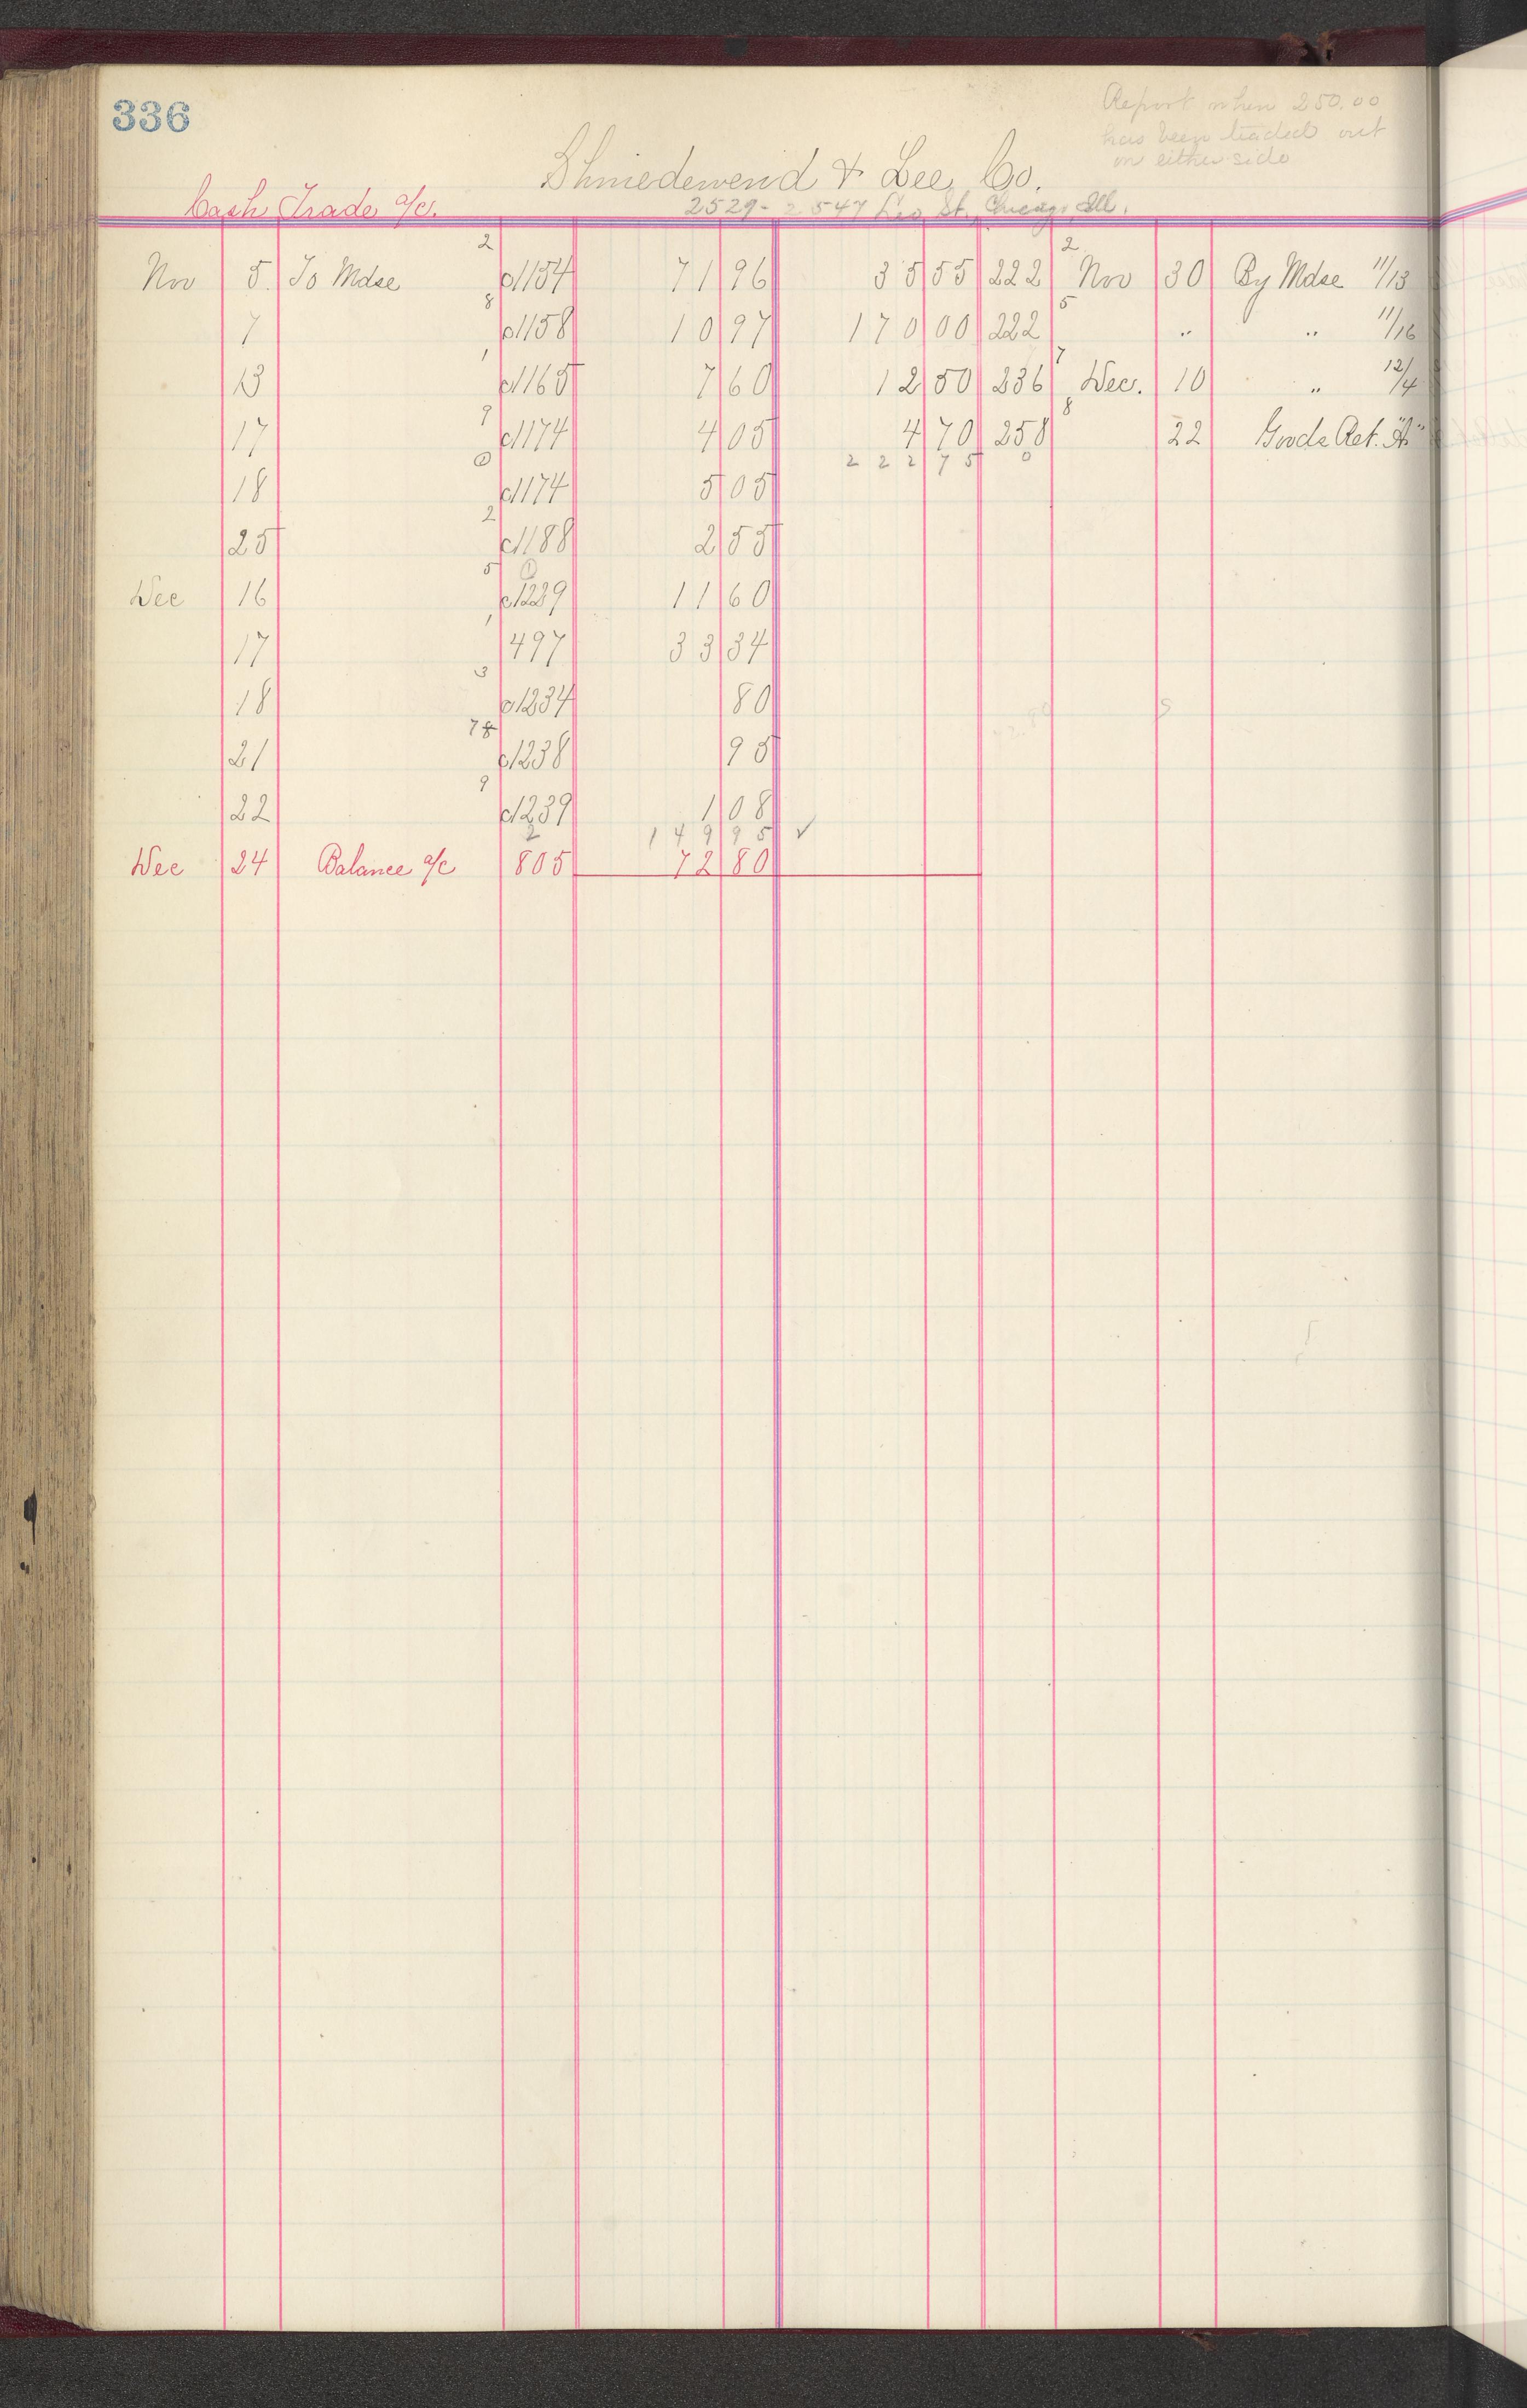 336
Report when 250.00
has been traded out
on either side
Shniedewend & Lee Co.
Cash Trade a/c.
2529-2547 Leo St. Chicago Ill.
2 2
Nov 5. To Mdse c1154 71 96 35 55 222 Nov 30 By Mdse 11/13
8 5
7 c1158 10 97 170 00 222 " " 11/16
1 7
13 c1165 7 60 12 50 236 Dec. 10 " 12/4
9 8
17 c1174 4 05 4 70 258 22 Goods Ret.
0 222 75 0
18 c1174 5 05
2
25 c1188 2 55
5
Dec 16 c1229 11 60
1
17 497 33 34
3
18 c1234 80
78
21 c1238 95
9
22 c1239 1 08
2 149 95 ✓
Dec 24 Balance a/c 805 72 80